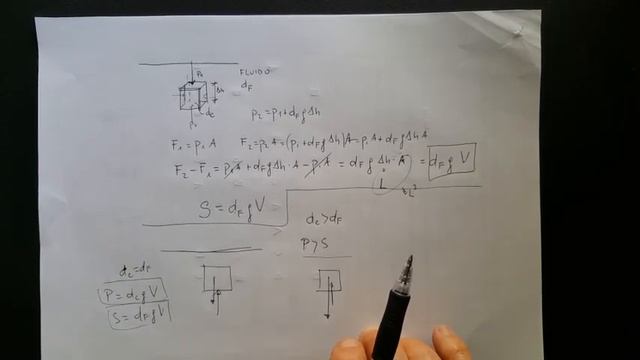 p₁
FLUIDO
d_F
Δh
d_c
p₂ = p₁ + d_F g Δh
F₁ = p₁ A F₂ = p₂ A = (p₁ + d_F g Δh) A = p₁ A + d_F g Δh A
F₂ - F₁ = p₁ A + d_F g Δh · A - p₁ A = d_F g Δh · A = d_F g V
L L²
S = d_F g V
d_c > d_F
P > S
d_c = d_F
P = d_c g V
S = d_F g V